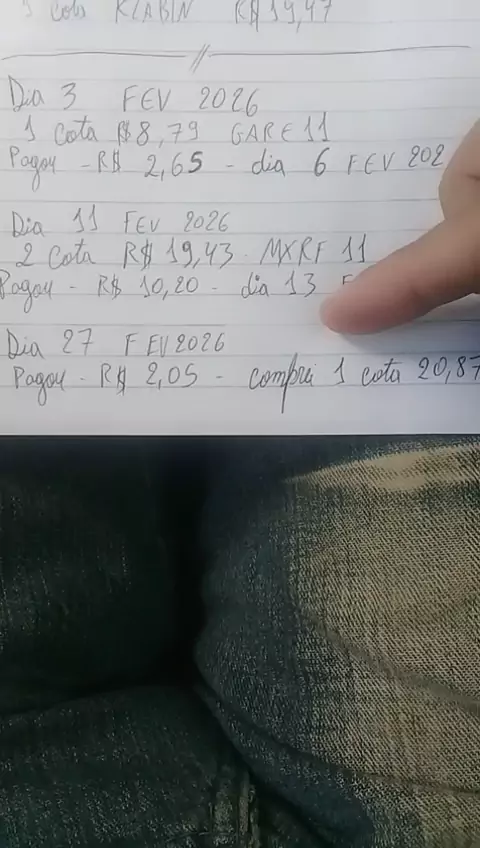 1 cota KLABIN R$ 19,47
Dia 3 FEV 2026
1 cota R$8,79 GARE11
Pagou - R$ 2,65 - dia 6 FEV 202
Dia 11 FEV 2026
2 cota R$ 19,43 - MXRF 11
Pagou - R$ 10,20 - dia 13 F
Dia 27 FEV 2026
Pagou - R$ 2,05 - comprei 1 cota 20,87